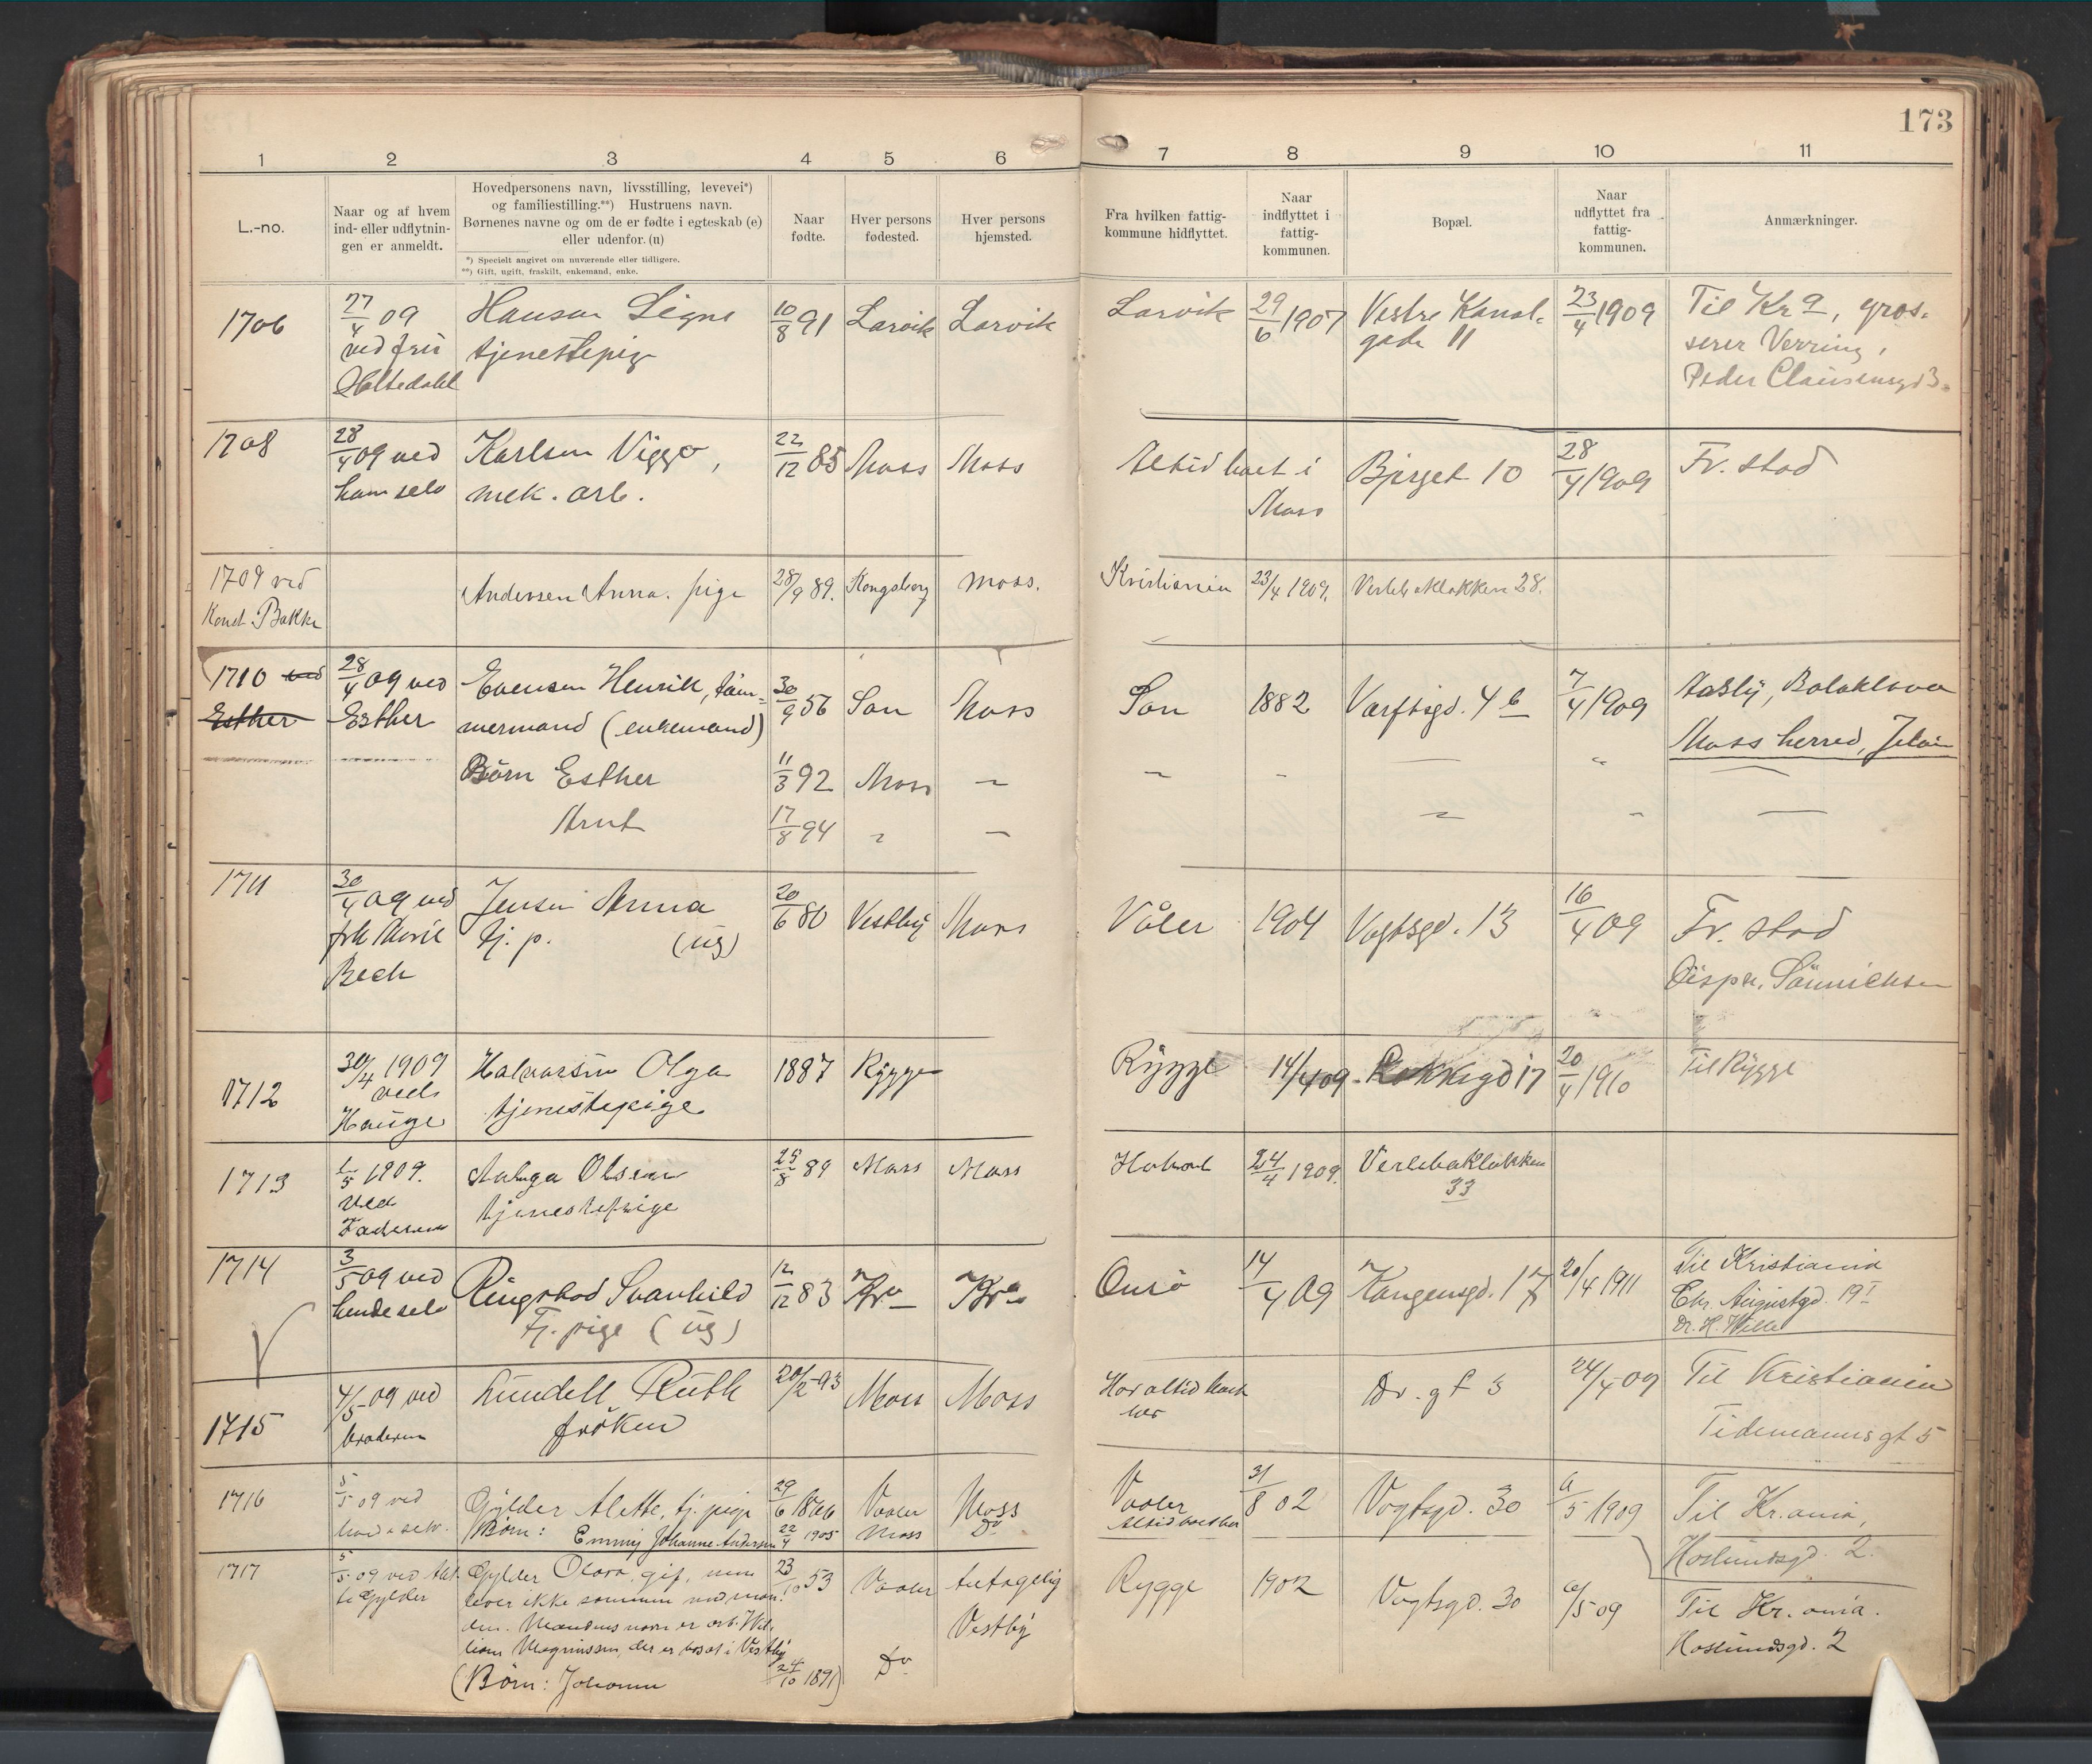 173
1 2 3 4 5 6 7 8 9 10 11
L.-no.
Naar og af hvem
ind- eller udflytnin-
gen er anmeldt.
Hovedpersonens navn, livsstilling, levevei*)
og familiestilling.**) Hustruens navn.
Børnenes navne og om de er fødte i egteskab (e)
eller udenfor. (u)
*) Specielt angivet om nuværende eller tidligere.
**) Gift, ugift, fraskilt, enkemand, enke.
Naar
fødte.
Hver persons
fødested.
Hver persons
hjemsted.
Fra hvilken fattig-
kommune hidflyttet.
Naar
indflyttet i
fattig-
kommunen.
Bopæl.
Naar
udflyttet fra
fattig-
kommunen.
Anmærkninger.
1706 27/4 09 Hansen Signe 10/8 91 Larvik Larvik Larvik 29/6 1907 Vestre Kanal- 23/4 1909 Til Kra, gros-
ved fru tjenestepige gade 11 serer Verring,
Holtedahl Peder Clausensgd 3.
1708 28/4 09 ved Karlsen Viggo, 22/12 85 Moss Moss Altid boet i Bjerget 10 28/4 1909 Fr.stad
ham selv mek. arb. Moss
1709 ved Andersen Anna. pige 28/9 89. Kongsberg Moss. Kristiania 23/4 1909. Verlebakløkken 28.
Konst. Bakke
1710 ved 28/4 09 ved Evensen Henrik, tøm- 30/9 56 Son Moss Son 1882 Varftsgd. 4 b 7/4 1909 Aasly, Balaklava
Esther Esther mermand (enkemand) Moss herred, Jeløen
Børn Esther 11/3 92 Moss –
Arnt 17/8 94 " –
1711 30/4 09 ved Jensen Anna 20/6 80 Vestby Moss Våler 1904 Vogtsgd. 13 16/4 09 Fr.stad
frk Marie tj. p. (ug)
Bech Disp. Sønnichsen
1712 30/4 1909 Halvorsen Olga 1887 Rygge Rygge 14/4 09 gd 17 20/4 1910 Til Rygge
ved tjenestepige
Hauge
1713 1/5 1909. Aslaga Olsen 25/8 89 Moss Moss Hobøl 24/4 1909. Verlebakløkken
ved tjenestepige 33
Faderen
1714 3/5 09 ved Ringstad Svanhild 12/12 83 Kra Kra Onsø 14/4 09 Kongensgd. 17 20/4 1911 Til Kristiania
hende selv Tj. pige (ug) Chr. Augustgd. 19 I
Dr. H. Wille
1715 4/5 09 ved Lundell Ruth 20/2 93 Moss Moss Har altid boet Dr. gt 3 24/4 09 Til Kristiania
broderen frøken her Tidemannsgt 5
1716 5/5 09 ved Gylder Alette, tj. pige 29/6 1866 Vaaler Moss Vaaler 31/8 02 Vogtsgd. 30 6/5 1909 Til Kr.ania,
hende selv. Børn: Emmy Johanne Andersen 22/4 1905 Moss Do Altid boet her Haslundsgd. 2.
1717 5/5 09 ved Alet- Gylder Olava, gift, men 23/10 53 Vaaler antagelig Rygge 1902 Vogtsgd. 30 6/5 09 Til Kr.ania.
te Gylder lever ikke sammen med man- Vestby Haslundsgd. 2
den. Mandens navn er arb. Wil-
liam Magnussen, der er bosat i Vestby
(Børn: Johanne 24/10 1891) Do